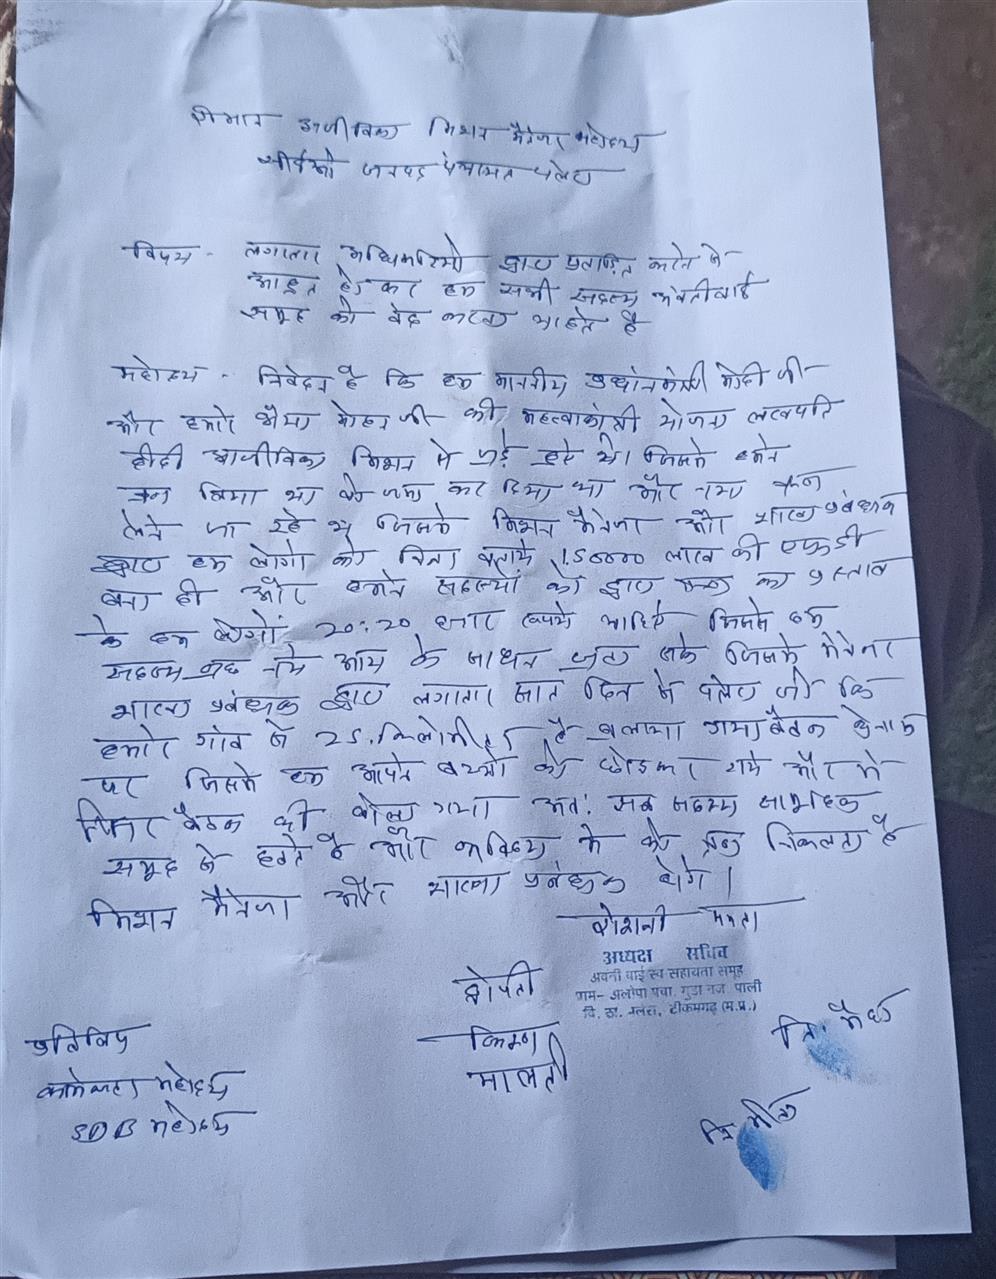 श्रीमान आजीविका मिशन मैनेजर महोदय
जनपद पंचायत पलेरा
विषय - लगातार अधिकारियो द्वारा प्रताड़ित करने से
आहत होकर हम सभी सदस्य अवंतीबाई
समूह को बंद करना चाहते है
महोदय - निवेदन है कि हम माननीय प्रधानमंत्री मोदी जी
और हमारे भैया मोहन जी की महत्वाकांक्षी योजना लखपति
दीदी आजीविका मिशन से जुड़े हुए थे। जिसमे हमने
लिया था वो जमा कर दिया था और नया
लेने जा रहे थे जिसमे मिशन मैनेजर और शाखा प्रबंधक
द्वारा हम लोगो को बिना बताये 150000 लाख की एफडी
बना दी और हमने सदस्यो के द्वारा का प्रस्ताव
के हम लोगो 20:20 हजार रूपये चाहिये जिससे हम
सदस्य कुछ नये आय के साधन जुटा सके जिसमे मैनेजर
शाखा प्रबंधक द्वारा लगातार सात दिन से पलेरा जो कि
हमारे गांव से 25 किलोमीटर है बुलाया गया बैठक के नाम
पर जिसमे हम अपने बच्चो को छोड़कर गये और
फिर बैठक की बोला गया अतः सब सदस्य सामूहिक
समूह से हटते है और भविष्य मे निकलता है
मिशन मैनेजर और शाखा प्रबंधक होगे।
रोशनी ममता
अध्यक्ष सचिव
अवनी बाई स्व सहायता समूह
पाली
टीकमगढ़ (म.प्र.)
किरण
मालती
नि.
नि
प्रतिलिपि
महोदय
महोदय